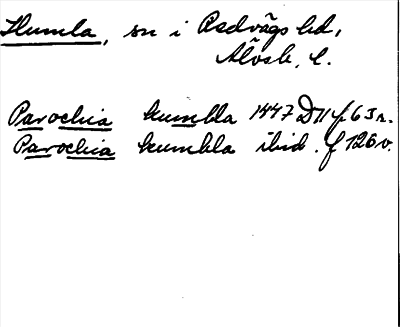 Humla, sn i Redvägs hd,
Älvsb. l.
Parochia humbla 1447 D 11 f. 63 r.
Parochia humbla ibid. f 126 v.